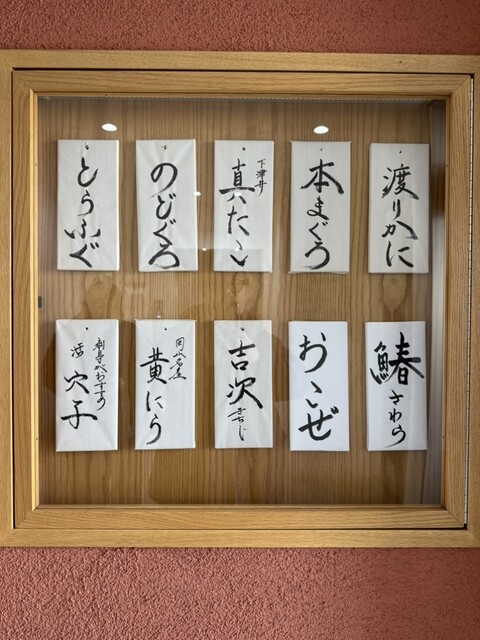 渡りかに
本まぐろ
下津井
真だこ
のどぐろ
とらふぐ
鰆さわら
おこぜ
吉次きちじ
岡山名産
黄にら
活
穴子